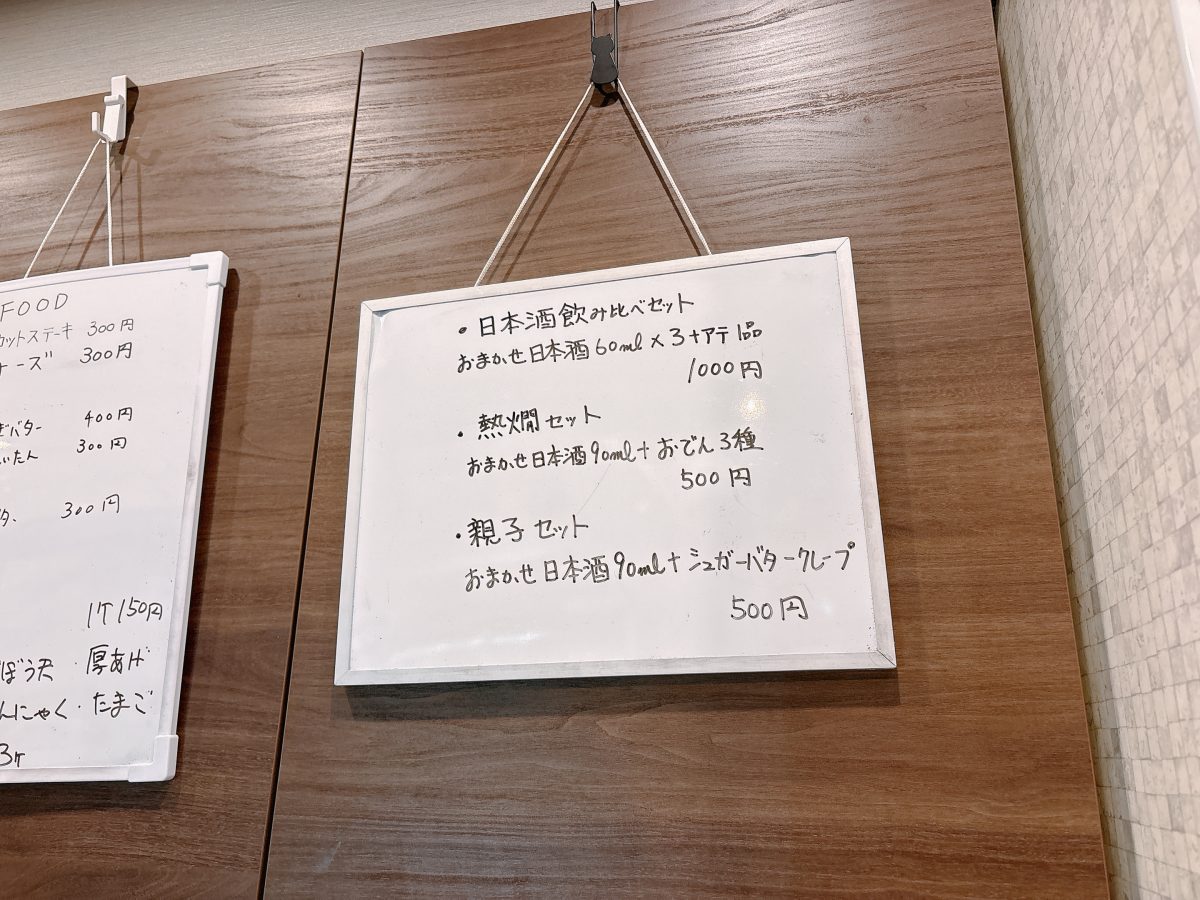 FOOD
カットステーキ 300円
ーズ 300円
バター 400円
いたん 300円
300円
1ケ 150円
ぼう天・厚あげ
んにゃく・たまご
3ケ
・日本酒飲み比べセット
おまかせ日本酒60ml×3+アテ1品
1000円
・熱燗セット
おまかせ日本酒90ml+おでん3種
500円
・親子セット
おまかせ日本酒90ml+シュガーバタークレープ
500円